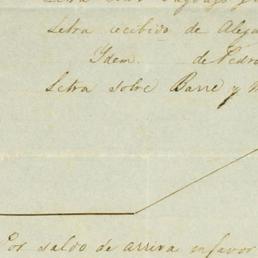 Letra
Letra recibido de Aleja
Ydem. de Pedro
Letra sobre Barre y
Por saldo de arriva infavor